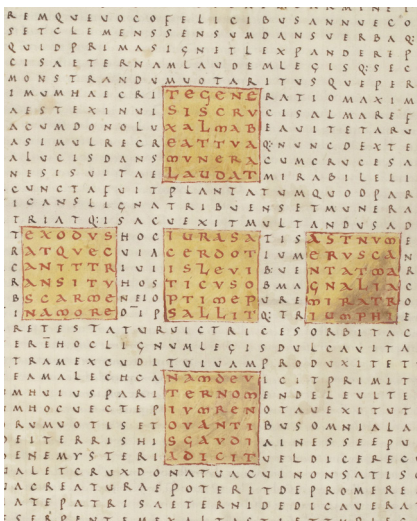 REMQUEUOCOFELICIBUSANNUEC
SETCLEMENSSENSUMDANSUERBAQ:
QUIDPRIMASIGNITLEXPANDEREP
CISAETERNAMLAUDEMLEGISQ:SEC
MONSTRANDMUOTARITUSQUEPER
IMUMHAECRITTEGENERATIOMAXIM
AESTEXINUISISCRVCISALMAREF
ACUMDONOLUXALMABEAUITETARU
ASIMULRECREATTVAQ:NUNCDEXTE
ALUCISDANSMVNERACUMCRUCESA
UESISUITAELAUDATMIRABILELI
CUNCTAFUITPLANTATUMQUODPAR
ICANSLIGNATRIBUENSETMUNERA
TRIATQ:ISACUEXITMULTANDUSD
TEXODVSHOCIURASATISASTNVM
RATQVECUIACERDOTIUMERVSCA
CANITTRISLEVIBUENTATMA
RANSITVHOSTICVSOBMAGNALIAC
BSCARMENEIOPTIMEPREMIRATR
NAMORED̅IPSALLITQ:TRIUMPHI
RETESTATURUICTRICESORBITAC
EREH̅OCLIGNUMLEGISDULCAUITA
TRAMEXCUDITUIUAMPRODUXITET
EAMALECHCANAMDEVICITPRIMIT
MHUIUSPARITERNOMENDELEUITE
UMHOCUECTEPIVMRENOTAUEXITUT
RUMUOTISETOVANTIBUSOMNIALA
DEITERRISHISGAVDIAINESSEEPU
DENEMYSTERIADICITUELDICEREC
ALETCRUXDONATUACUINONSATIS
ACREATURAEPOTERITDEPROMERE
ATEPATRISAETERNIDEDICAUERA